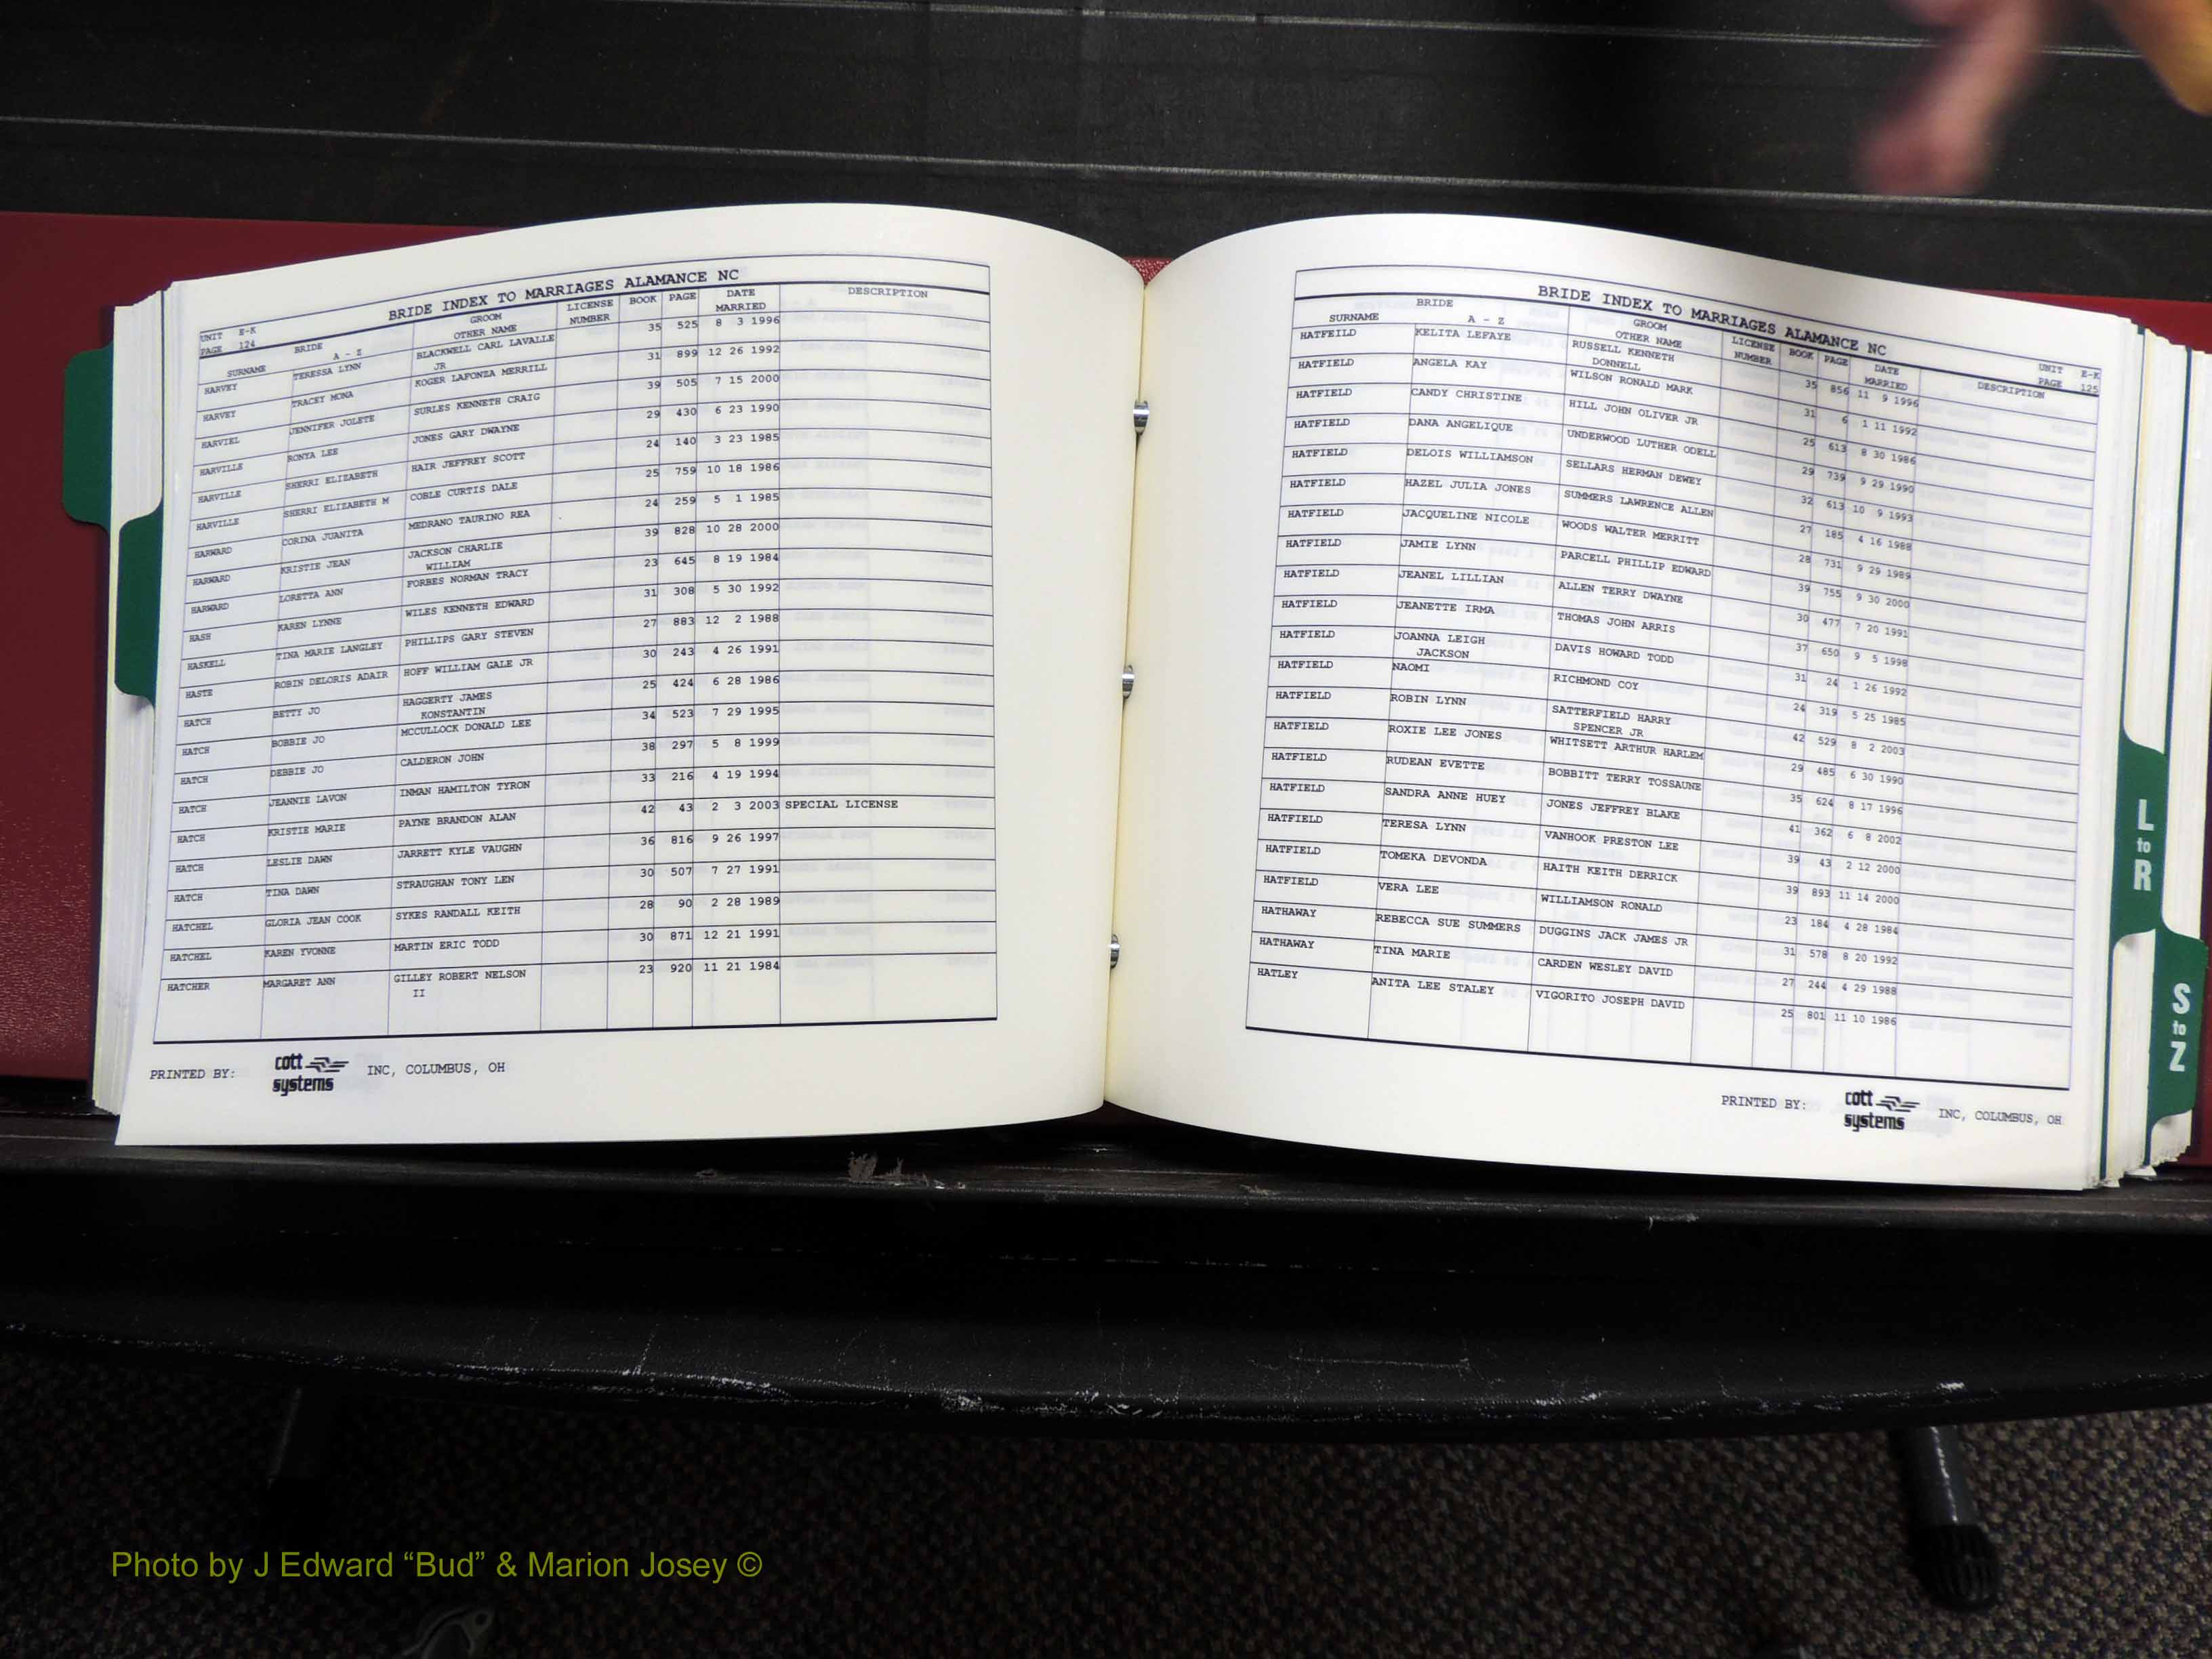 BRIDE INDEX TO MARRIAGES ALAMANCE NC
UNIT E-K
PAGE 124
SURNAME BRIDE A - Z GROOM OTHER NAME LICENSE NUMBER BOOK PAGE DATE MARRIED DESCRIPTION
HARVEY TERESSA LYNN BLACKWELL CARL LAVALLE JR 35 525 8 3 1996
HARVEY TRACEY MONA KOGER LAFONZA MERRILL 31 899 12 26 1992
HARVIEL JENNIFER JOLETE SURLES KENNETH CRAIG 39 505 7 15 2000
HARVILLE RONYA LEE JONES GARY DWAYNE 29 430 6 23 1990
HARVILLE SHERRI ELIZABETH HAIR JEFFREY SCOTT 24 140 3 23 1985
HARVILLE SHERRI ELIZABETH M COBLE CURTIS DALE 25 759 10 18 1986
HARWARD CORINA JUANITA MEDRANO TAURINO REA 24 259 5 1 1985
HARWARD KRISTIE JEAN JACKSON CHARLIE WILLIAM 39 828 10 28 2000
HARWARD LORETTA ANN FORBES NORMAN TRACY 23 645 8 19 1984
HASH KAREN LYNNE WILES KENNETH EDWARD 31 308 5 30 1992
HASKELL TINA MARIE LANGLEY PHILLIPS GARY STEVEN 27 883 12 2 1988
HASTE ROBIN DELORIS ADAIR HOFF WILLIAM GALE JR 30 243 4 26 1991
HATCH BETTY JO HAGGERTY JAMES KONSTANTIN 25 424 6 28 1986
HATCH BOBBIE JO MCCULLOCK DONALD LEE 34 523 7 29 1995
HATCH DEBBIE JO CALDERON JOHN 38 297 5 8 1999
HATCH JEANNIE LAVON INMAN HAMILTON TYRON 33 216 4 19 1994
HATCH KRISTIE MARIE PAYNE BRANDON ALAN 42 43 2 3 2003 SPECIAL LICENSE
HATCH LESLIE DAWN JARRETT KYLE VAUGHN 36 816 9 26 1997
HATCH TINA DAWN STRAUGHAN TONY LEN 30 507 7 27 1991
HATCHEL GLORIA JEAN COOK SYKES RANDALL KEITH 28 90 2 28 1989
HATCHEL KAREN YVONNE MARTIN ERIC TODD 30 871 12 21 1991
HATCHER MARGARET ANN GILLEY ROBERT NELSON II 23 920 11 21 1984
PRINTED BY: cott systems INC, COLUMBUS, OH
BRIDE INDEX TO MARRIAGES ALAMANCE NC
UNIT E-K
PAGE 125
SURNAME BRIDE A - Z GROOM OTHER NAME LICENSE NUMBER BOOK PAGE DATE MARRIED DESCRIPTION
HATFEILD KELITA LEFAYE RUSSELL KENNETH DONNELL 35 856 11 9 1996
HATFIELD ANGELA KAY WILSON RONALD MARK 31 6 1 11 1992
HATFIELD CANDY CHRISTINE HILL JOHN OLIVER JR 25 613 8 30 1986
HATFIELD DANA ANGELIQUE UNDERWOOD LUTHER ODELL 29 739 9 29 1990
HATFIELD DELOIS WILLIAMSON SELLARS HERMAN DEWEY 32 613 10 9 1993
HATFIELD HAZEL JULIA JONES SUMMERS LAWRENCE ALLEN 27 185 4 16 1988
HATFIELD JACQUELINE NICOLE WOODS WALTER MERRITT 28 731 9 29 1989
HATFIELD JAMIE LYNN PARCELL PHILLIP EDWARD 39 755 9 30 2000
HATFIELD JEANEL LILLIAN ALLEN TERRY DWAYNE 30 477 7 20 1991
HATFIELD JEANETTE IRMA THOMAS JOHN ARRIS 37 650 9 5 1998
HATFIELD JOANNA LEIGH JACKSON DAVIS HOWARD TODD 31 24 1 26 1992
HATFIELD NAOMI RICHMOND COY 24 319 5 25 1985
HATFIELD ROBIN LYNN SATTERFIELD HARRY SPENCER JR 42 529 8 2 2003
HATFIELD ROXIE LEE JONES WHITSETT ARTHUR HARLEM 29 485 6 30 1990
HATFIELD RUDEAN EVETTE BOBBITT TERRY TOSSAUNE 35 624 8 17 1996
HATFIELD SANDRA ANNE HUEY JONES JEFFREY BLAKE 41 362 6 8 2002
HATFIELD TERESA LYNN VANHOOK PRESTON LEE 39 43 2 12 2000
HATFIELD TOMEKA DEVONDA HAITH KEITH DERRICK 39 893 11 14 2000
HATFIELD VERA LEE WILLIAMSON RONALD 23 184 4 28 1984
HATHAWAY REBECCA SUE SUMMERS DUGGINS JACK JAMES JR 31 578 8 20 1992
HATHAWAY TINA MARIE CARDEN WESLEY DAVID 27 244 4 29 1988
HATLEY ANITA LEE STALEY VIGORITO JOSEPH DAVID 25 801 11 10 1986
PRINTED BY: cott systems INC, COLUMBUS, OH
L
to
R
S
to
Z
Photo by J Edward “Bud” & Marion Josey ©